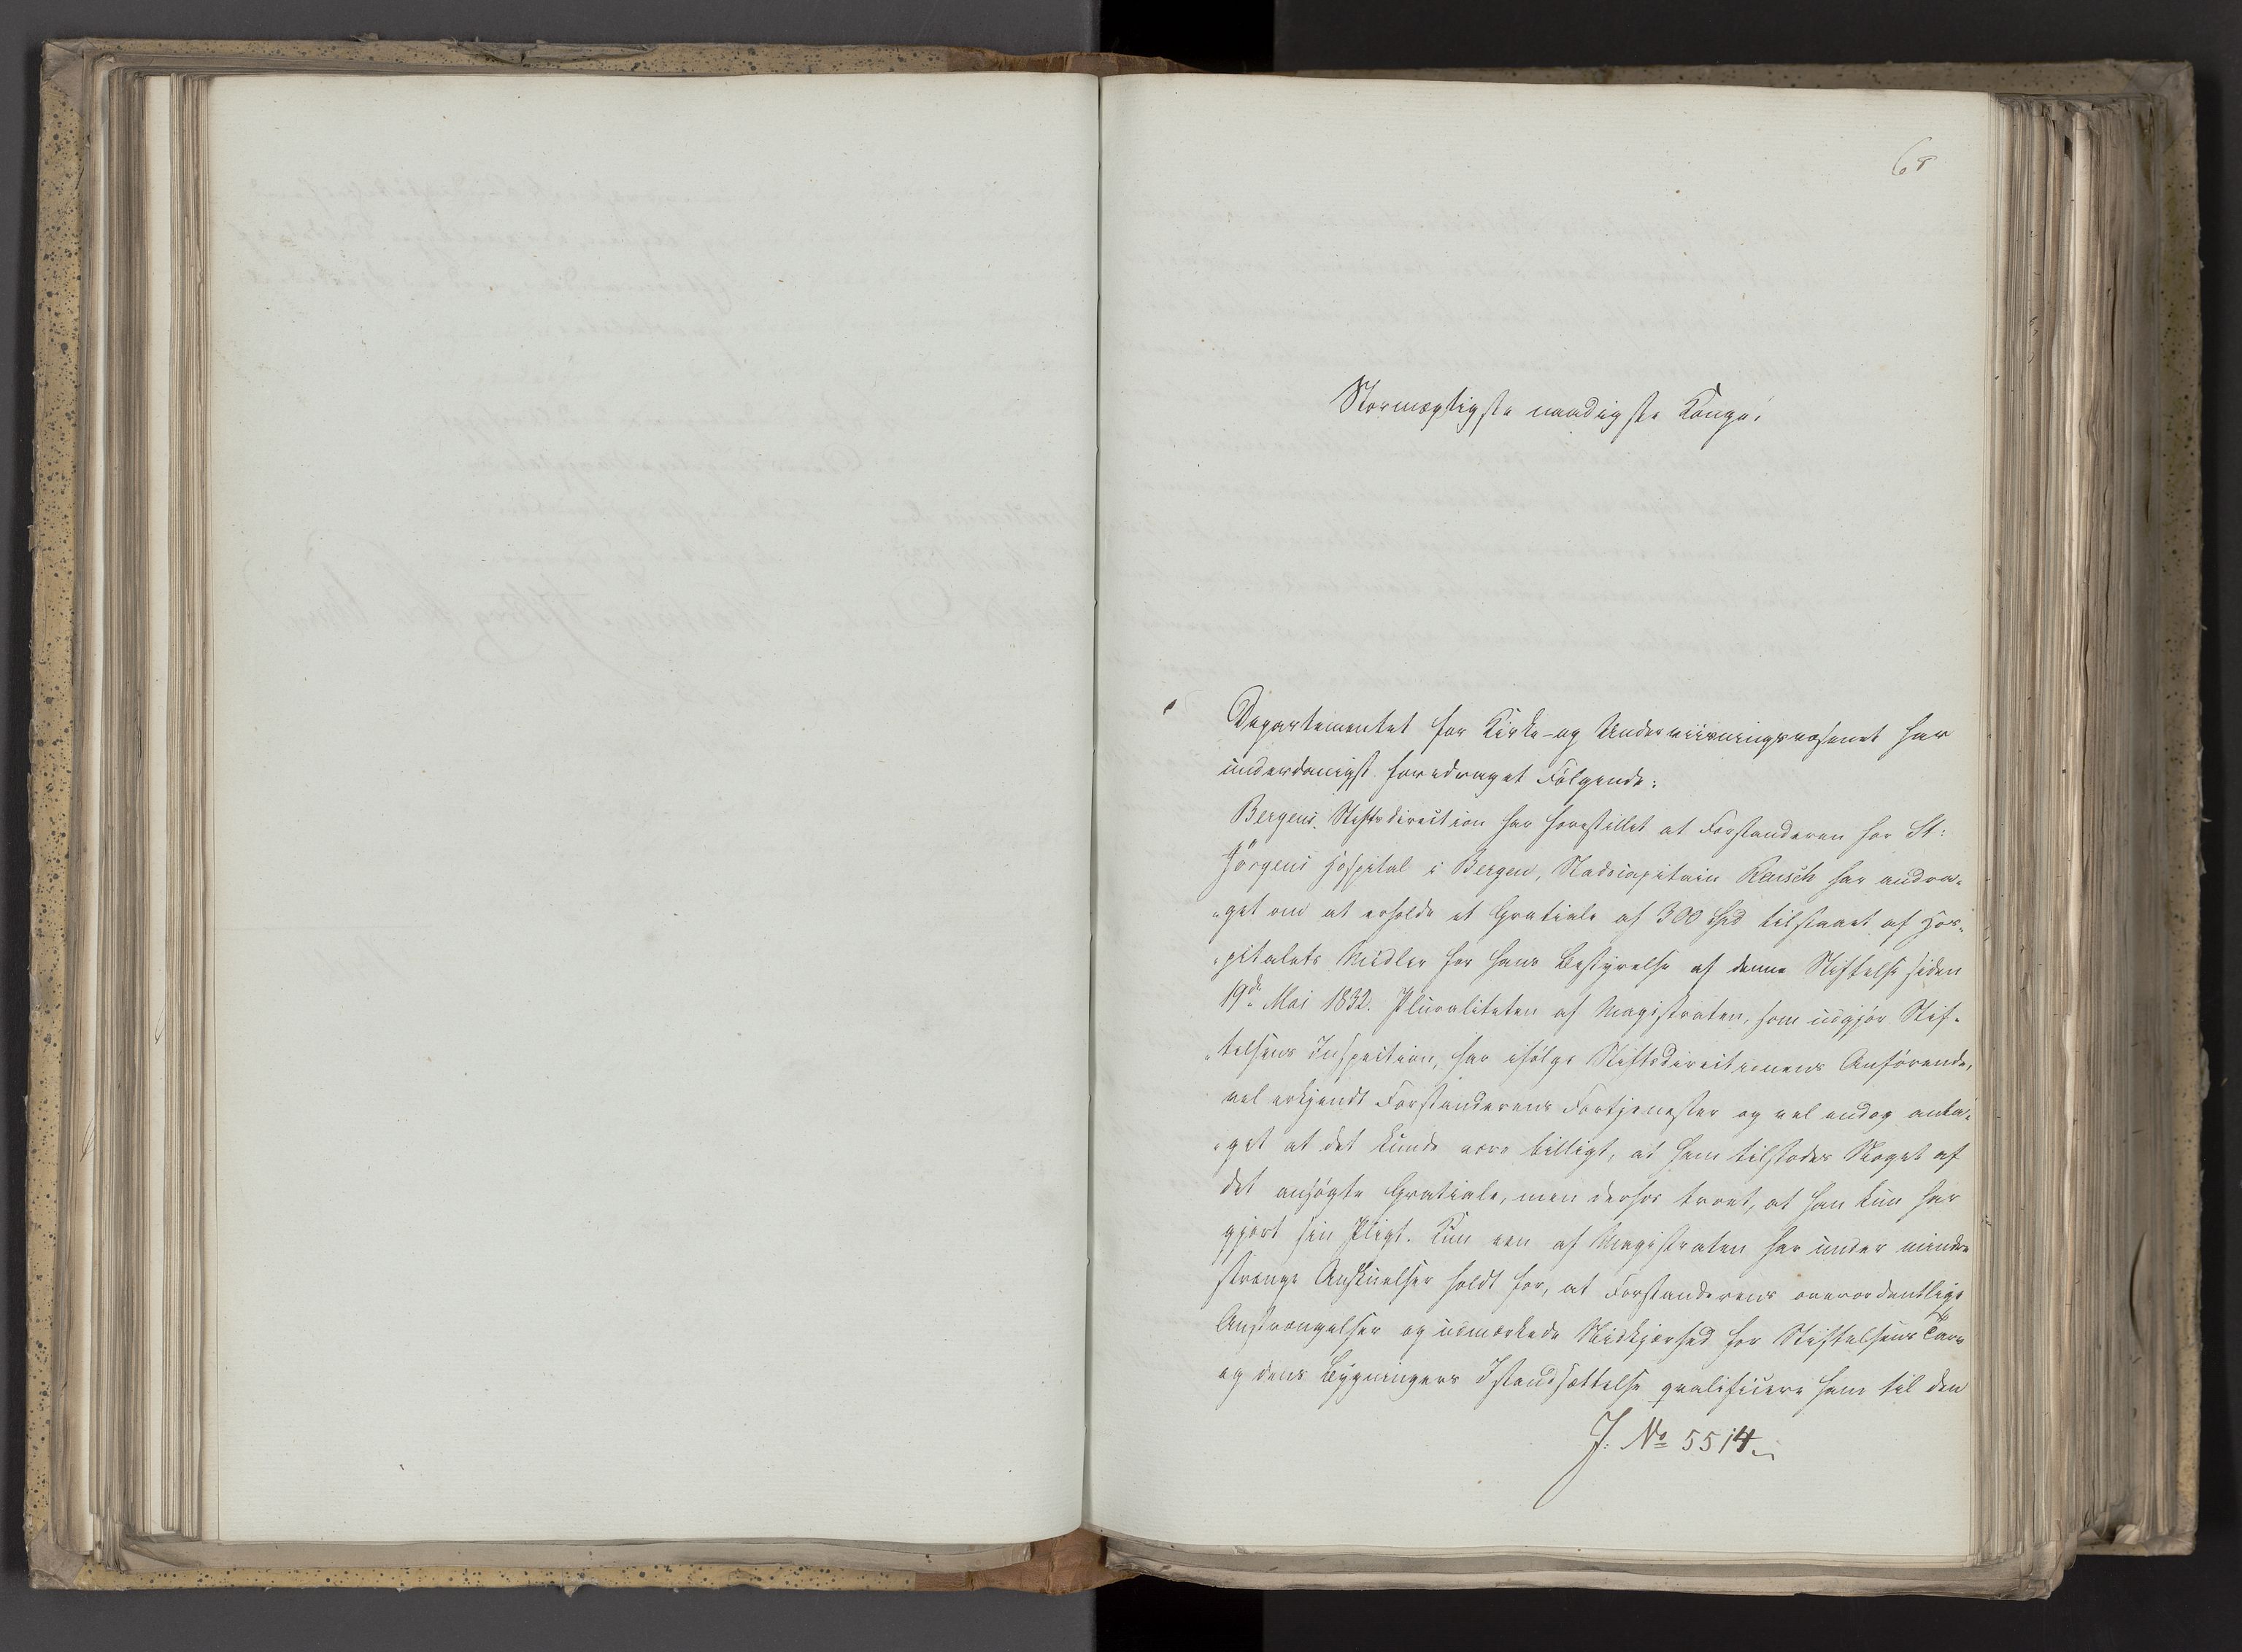 68
Stormægtigste naadigste Konge!
Departementet for Kirke- og Underviisningsvæsenet har
underdanigst foredraget Følgende:
Bergens Stiftsdirection har forestillet at Forstanderen for St:
Jørgens Hospital i Bergen, Stadscapitain Reusch har andra-
"get om at erholde et Gratiale af 300 Spd tilstaaet af Hos-
"pitalets Midler for hans Bestyrelse af denne Stiftelse siden
19de Mai 1832. Pluraliteten af Magistraten, som udgjør Stif-
"telsens Inspection, har ifølge Stiftsdirectionens Anførende,
vel erkjendt Forstanderens Fortjenester og vel endog anta-
"get at det kunde være billigt, at ham tilstodes Noget af
det ansøgte Gratiale, men derhos troet, at han kun har
gjort sin Pligt. Kun een af Magistraten har under mindre
strænge Anskuelser holdt for, at Forstanderens overordentlige
Anstrængelser og udmærkede Nidkjærhed for Stiftelsens Tarv
og dens Bygningers Istandsættelse qvalificere ham til den
J. No 5514.